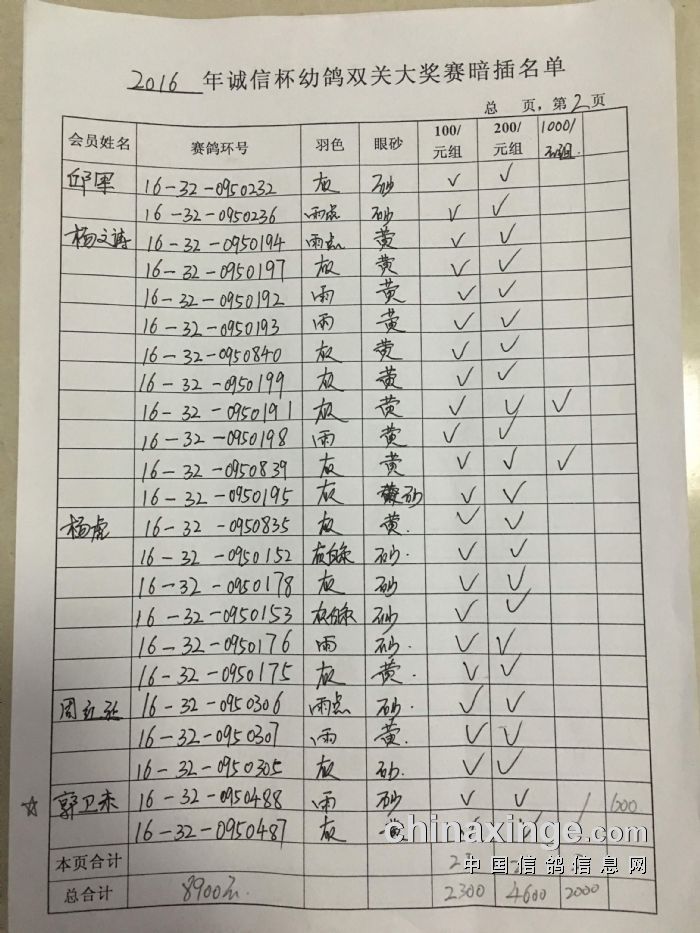 2016 年诚信杯幼鸽双关大奖赛暗插名单
总 页，第2页
会员姓名 赛鸽环号 羽色 眼砂 100/元组 200/元组 1000/元组
邱军 16-32-0950232 灰 砂 √ √
16-32-0950236 雨点 砂 √ √
杨文涛 16-32-0950194 雨点 黄 √ √
16-32-0950197 灰 黄 √ √
16-32-0950192 雨 黄 √ √
16-32-0950193 雨 黄 √ √
16-32-0950840 灰 黄 √ √
16-32-0950199 灰 黄 √ √
16-32-0950191 灰 黄 √ √ √
16-32-0950198 雨 黄 √ √
16-32-0950839 灰 黄 √ √ √
16-32-0950195 灰 砂 √ √
杨虎 16-32-0950835 灰 黄. √ √
16-32-0950152 灰白条 砂. √ √
16-32-0950178 灰 砂 √ √
16-32-0950153 灰白条 砂 √ √
16-32-0950176 雨 砂. √ √
16-32-0950175 灰 黄. √ √
周红 16-32-0950306 雨点 砂. √ √
16-32-0950307 雨 黄. √ √
16-32-0950305 灰 砂. √ √
☆ 郭卫 16-32-0950488 雨 砂 √ √
16-32-0950487 灰 黄
chinaxinge.com
本页合计
中国信鸽信息网
总合计 8900元. 2300 4600 2000